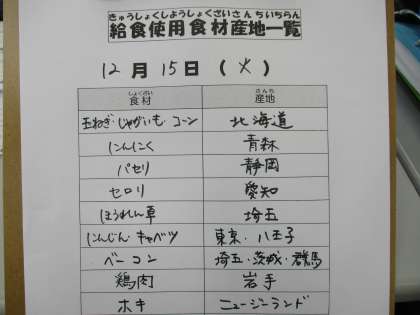 きゅうしょくしようしょくざいさんちいちらん
給食使用食材産地一覧
12月15日(火)
しょくざい さんち
食材 産地
玉ねぎ・じゃがいも コーン 北海道
にんにく 青森
パセリ 静岡
セロリ 愛知
ほうれん草 埼玉
にんじん・キャベツ 東京・八王子
ベーコン 埼玉・茨城・群馬
鶏肉 岩手
ホキ ニュージーランド